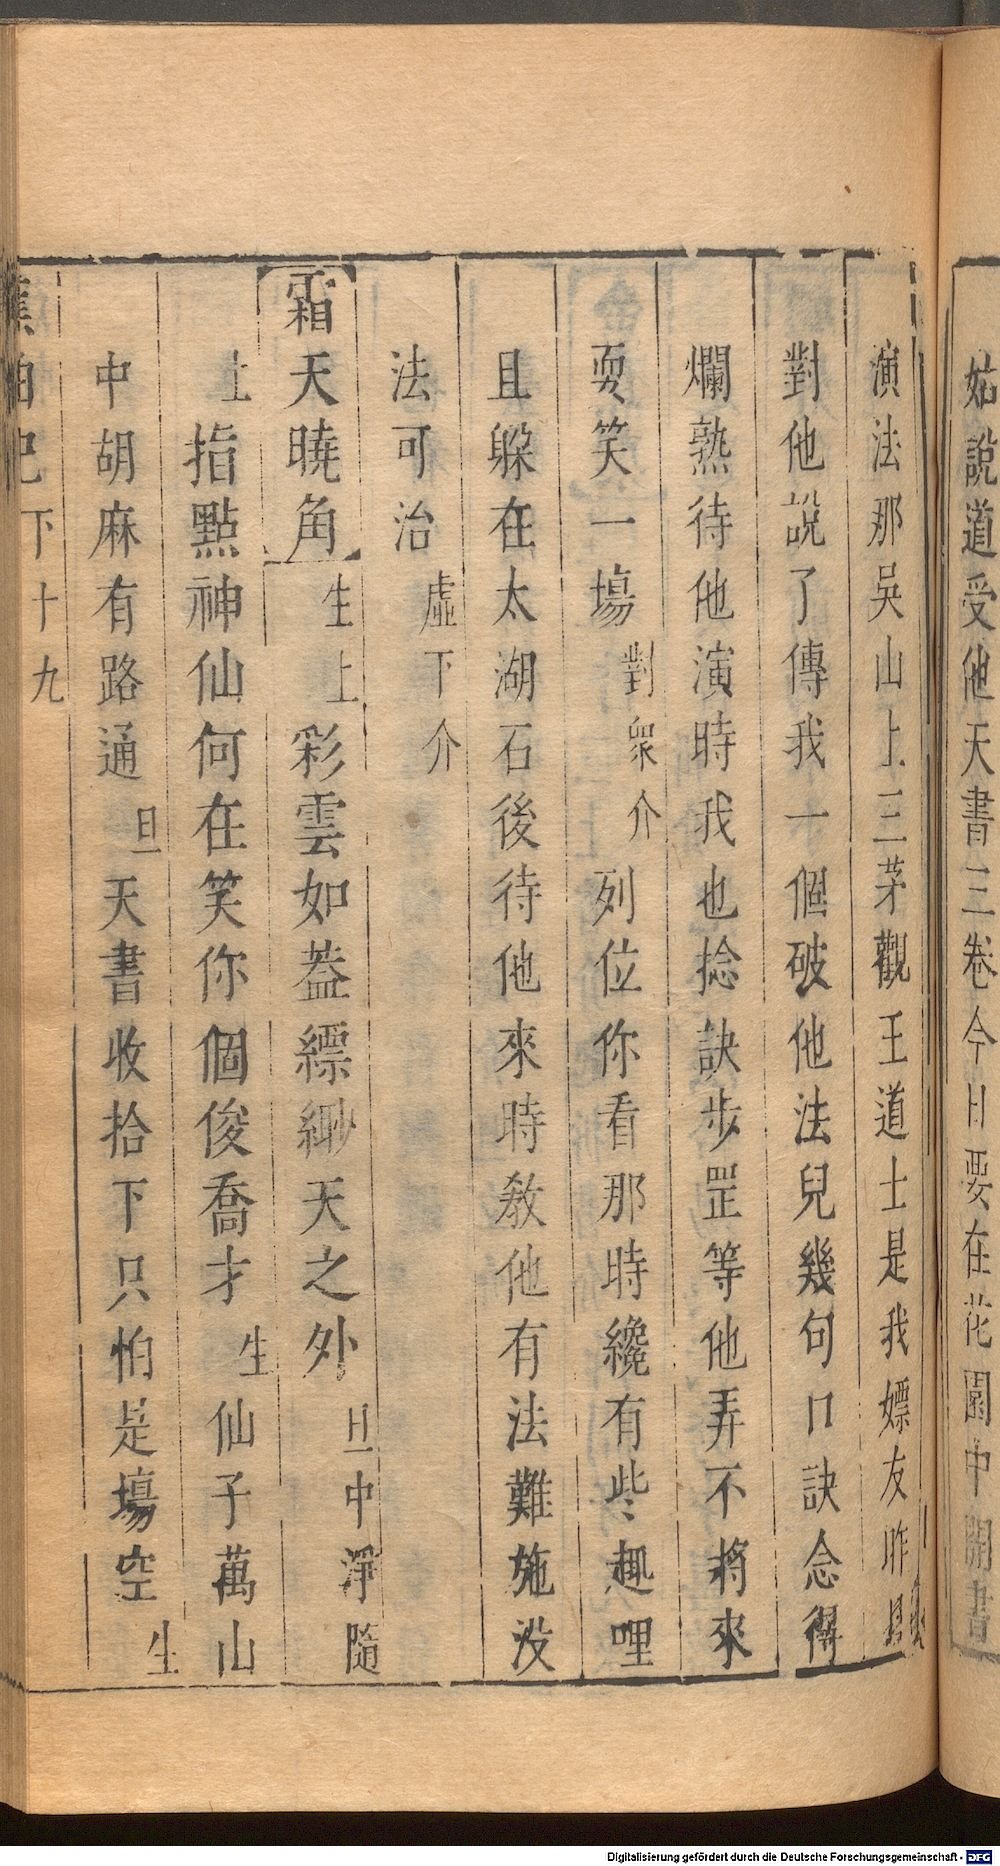 姑說道受他天書三卷今日要在花園中開書
演法那吳山上三茅觀王道士是我嫖友昨
對他說了傳我一個破他法兒幾句口訣念得
爛熟待他演時我也捻訣步罡等他弄不將來
耍笑一場對衆介列位你看那時纔有些趣哩
且躲在太湖石後待他來時敎他有法難施没
法可治虛下介
霜天曉角生上彩雲如葢縹緲天之外旦中淨隨
上指點神仙何在笑你個俊喬才生仙子萬山
中胡麻有路通旦天書收拾下只怕是塲空生
蕉帕記下十九
Digitalisierung gefördert durch die Deutsche Forschungsgemeinschaft - DFG